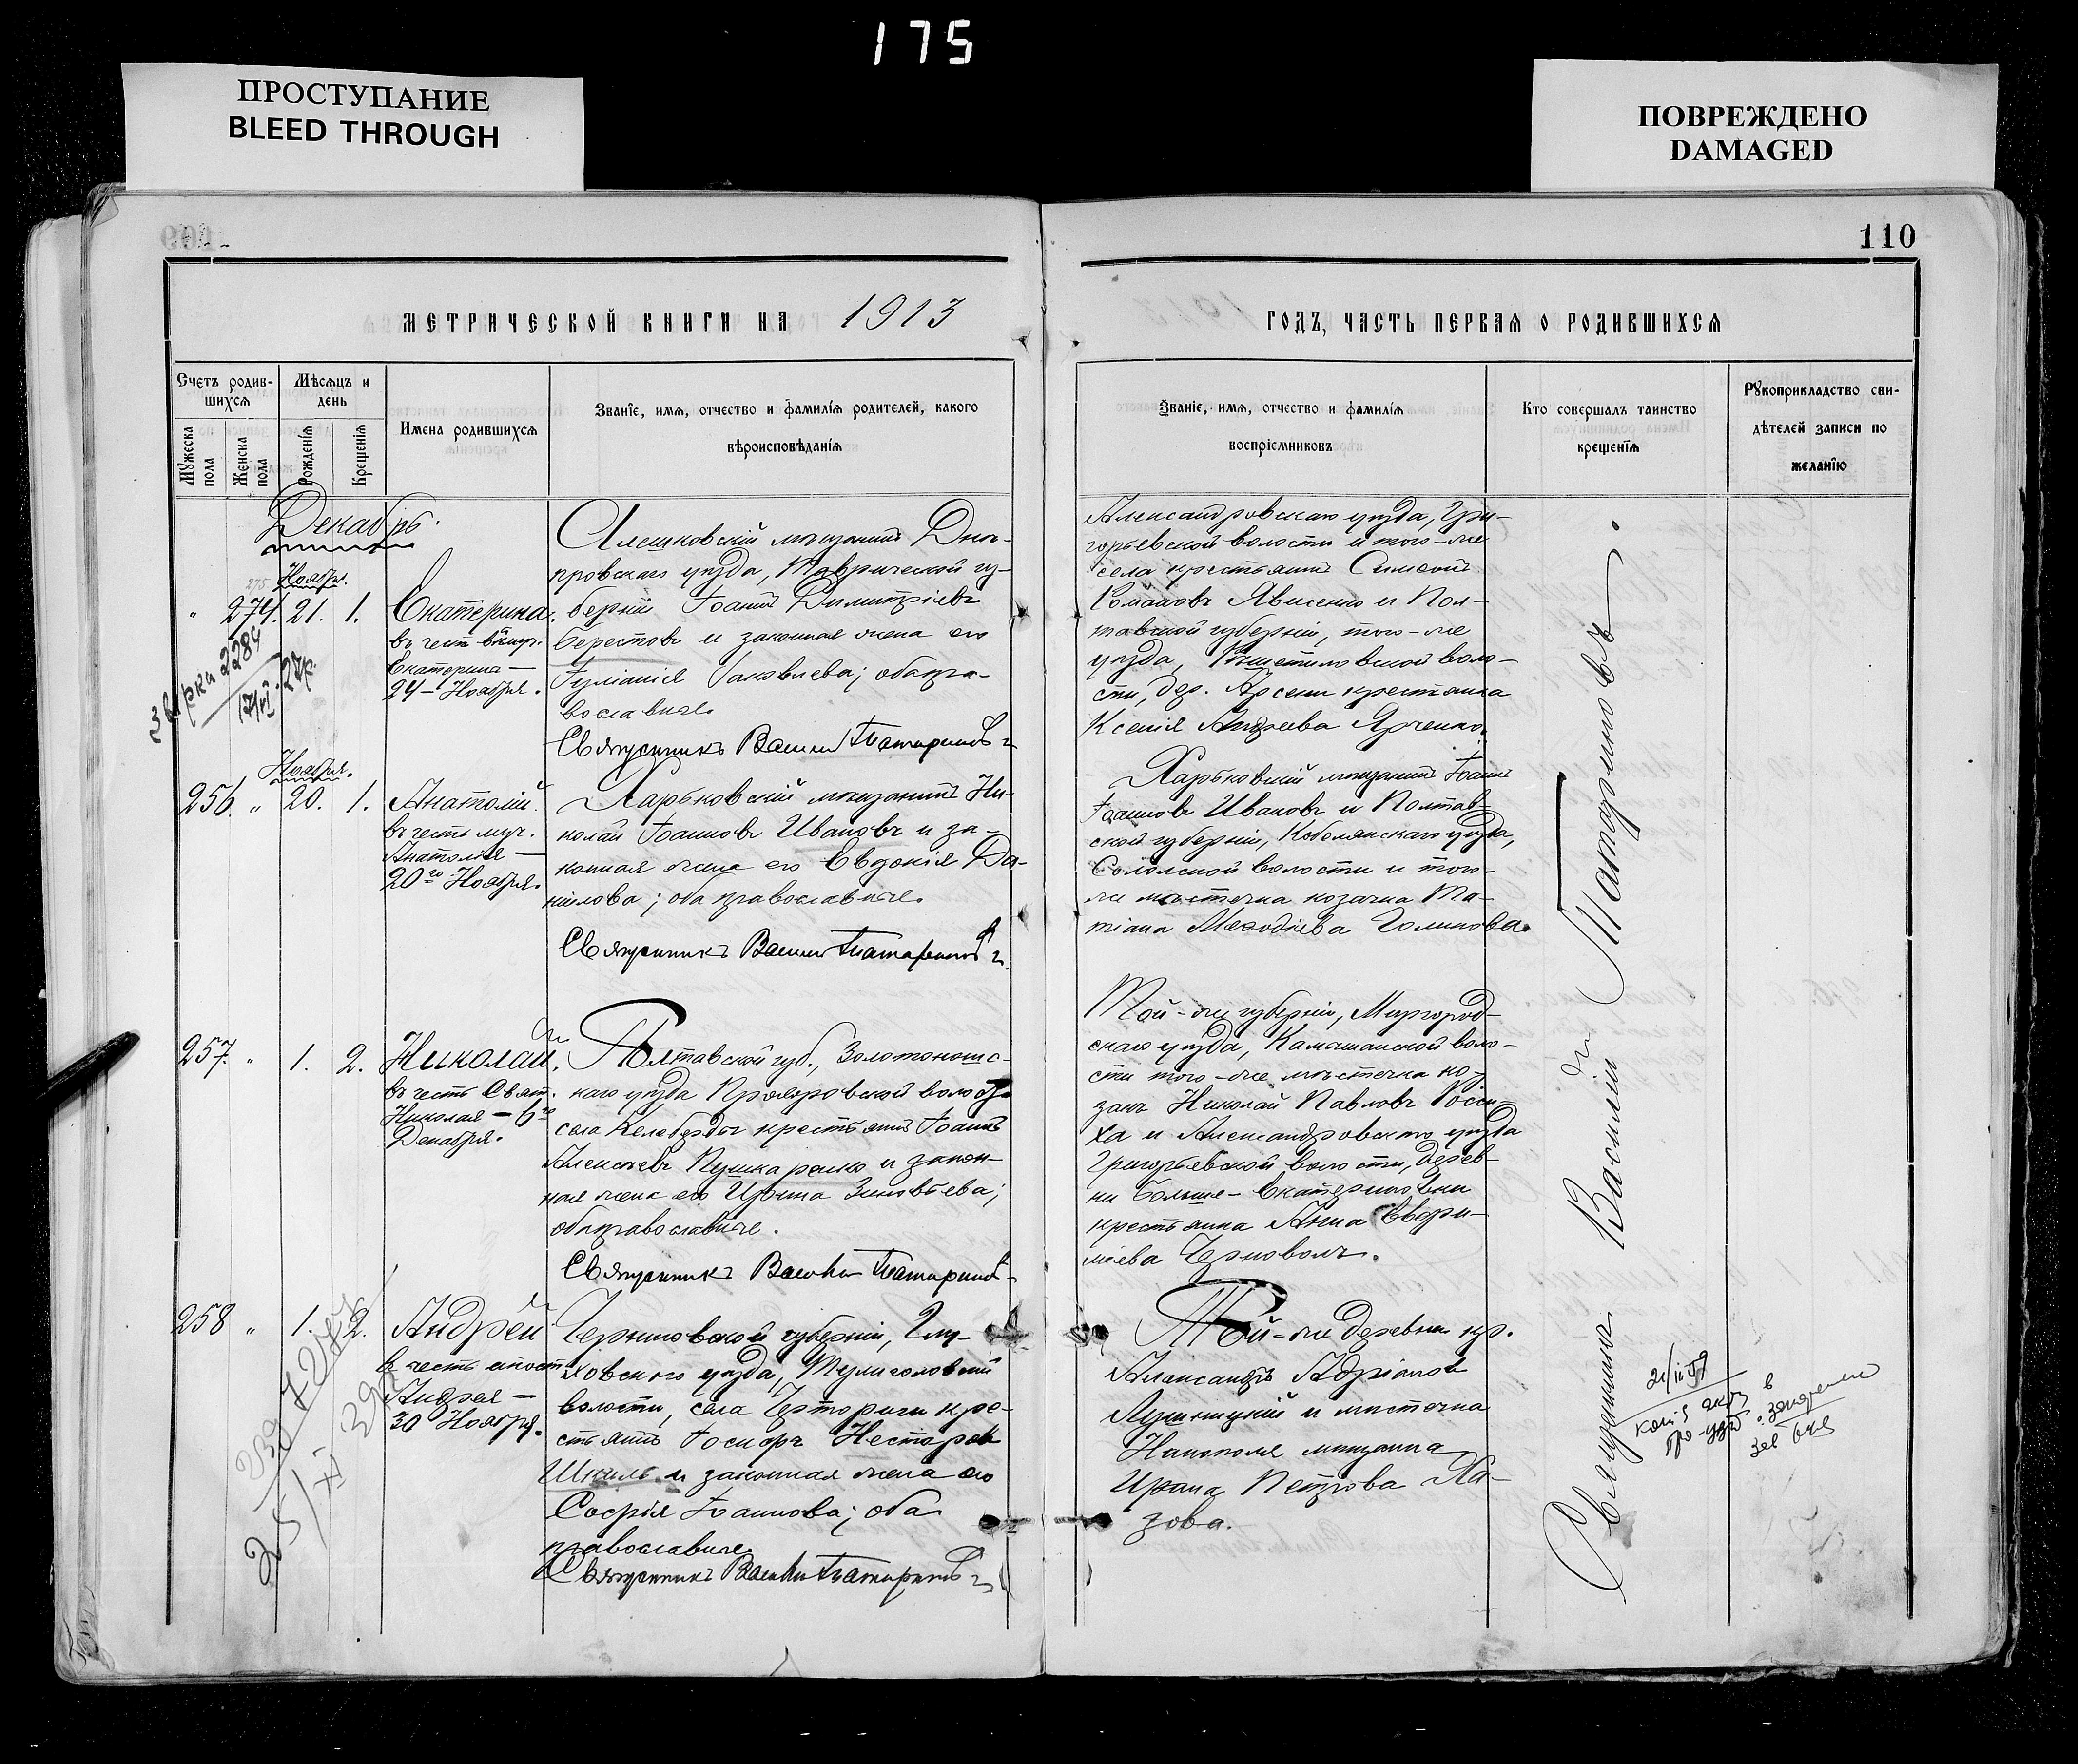 175
ПРОСТУПАНИЕ
BLEED THROUGH
ПОВРЕЖДЕНО
DAMAGED
110
МЕТРИЧЕСКОЙ КНИГИ НА 1913
ГОДЪ, ЧАСТЬ ПЕРВАЯ О РОДИВШИХСЯ
Счетъ родив-
шихся
Мужеска
пола
Женска
пола
Мѣсяцъ и
день
Рожденія
Крещенія
Имена родившихся
Званіе, имя, отчество и фамилія родителей, какого
вѣроисповѣданія
Званіе, имя, отчество и фамилія
воспріемниковъ
Кто совершалъ таинство
крещенія
Рукоприкладство сви-
дѣтелей записи по
желанію
Декабрь.
Ноября.
" 274. 21. 1.
Екатерина.
въ честь
Екатерины —
24 – Ноября.
Алешковскій мѣщанинъ Днѣ-
провскаго уѣзда, Таврической гу-
берніи Іоаннъ Димитріевъ
Берестовъ и законная жена его
Іуліанія Іаковлева; оба пра-
вославные.
Священникъ Василій Татариновъ
Александровскаго уѣзда, Гри-
горьевской волости и того-же
села крестьянинъ Симеонъ
Романовъ Явисенко и Пол-
тавской губерніи, того-же
уѣзда, волο-
сти, дер. крестьянка
Ксенія Андреева Ярченко.
Ноября.
256. " 20. 1.
Анатолій.
въ честь муч.
Анатолія —
20го Ноября.
Харьковскій мѣщанинъ Ни-
колай Іоанновъ Ивановъ и за-
конная жена его Евдокія Да-
нилова; оба православные.
Священникъ Василій Татариновъ
Харьковскій мѣщанинъ Іоаннъ
Іоанновъ Ивановъ и Полтав-
ской губерніи, Кобелякскаго уѣзда,
волости и того-
же мѣстечка козачка Та-
тіана Меѳодіева Голикова.
257. " 1. 2.
Николай.
въ честь Свят.
Николая – 6го
Декабря.
Полтавской губ., Золотоношс-
каго уѣзда волости
села Келеберды крестьянинъ Іоаннъ
Алексѣевъ Пушкаренко и закон-
ная жена его Ирина Зиновьева;
оба православные.
Священникъ Василій Татариновъ
Той-же губерніи, Миргород-
скаго уѣзда, Камышанской воло-
сти того-же мѣстечка ко-
закъ Николай Павловъ
и Александровскаго уѣзда
Григорьевской волости, дерев-
ни Больше-Екатериновки
крестьянка Анна
Черноволъ.
258 " 1. 2.
Андрей
въ честь апост.
Андрея —
30 Ноября.
Черниговской губерніи, Глу-
ховского уѣзда, Тулиголовской
волости, села Чорториги кре-
стьянинъ Іосифъ Несторовъ
Шкиль и законная жена его
Софія Іоаннова; оба
православные.
Священникъ Василій Татариновъ
Той-же деревни кр.
Александръ Адріановъ
и мѣстечка
Никополя мѣщанка
Ирина Петрова Ха-
зова.
Священникъ Василій Татариновъ.